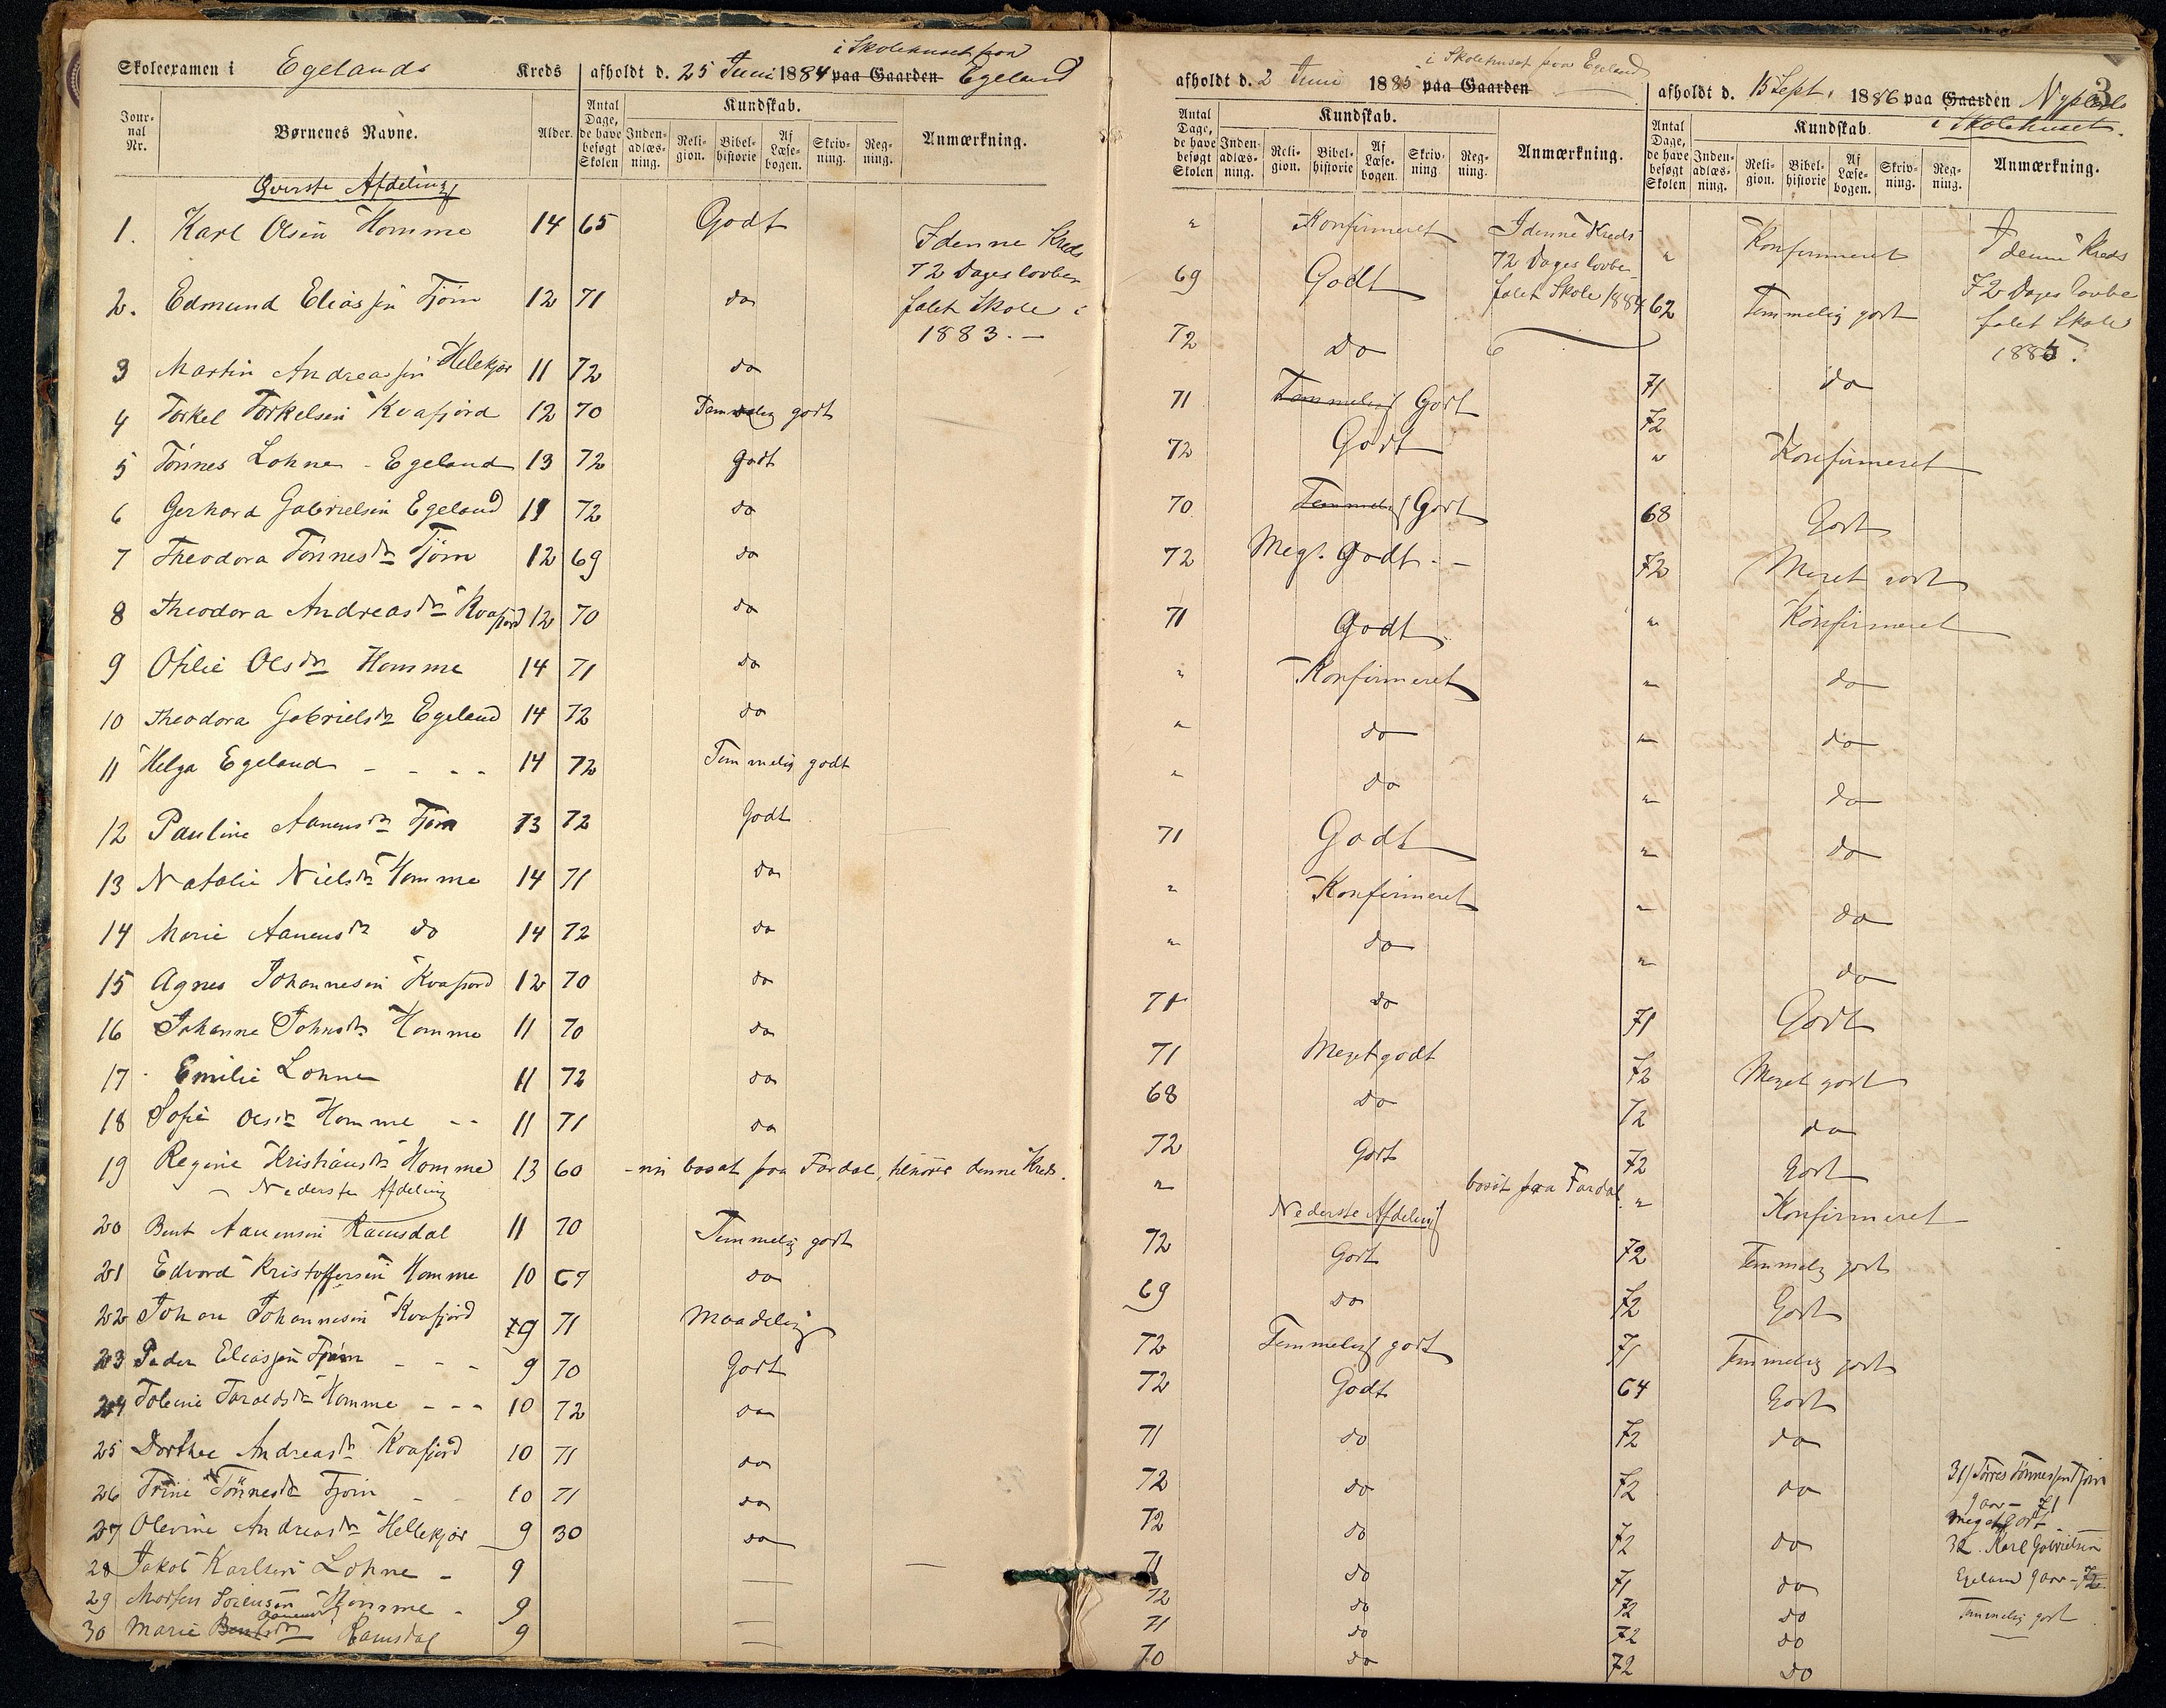 Skoleexamen i Egelands Kreds afholdt d. 25 Juni 1884 paa Gaarden i Skolehuset paa Egeland
Jour-nal Nr. Børnenes Navne. Alder. Antal Dage, de have besøgt Skolen Kundskab. Inden-adlæs-ning. Reli-gion. Bibel-historie Af Læse-bogen. Skriv-ning. Reg-ning. Anmærkning.
Øverste Afdeling
1. Karl Olsen Homme 14 65 Godt
I denne Kreds
72 Dages lovbe-
falet Skole i
1883. —
2. Edmund Eliassen Tjörn 12 71 do
3 Martin Andreassen Hellekjær 11 72 do
4 Torkel Torkelsen Kvafjord 12 70 Temmelig godt
5 Tönnes Lohne - Egeland 13 72 godt
6 Gerhard Gabrielsen Egeland 11 72 do
7 Theodora Tönnesdr Tjörn 12 69 do
8 Theodora Andreasdr Kvafjord 12 70 do
9 Otilie Olsdr Homme 14 71 do
10 Theodora Gabrielsdr Egeland 14 72 do
11 Helga Egeland - - - - 14 72 Temmelig godt
12 Pauline Aanensdr Tjörn 13 72 Godt
13 Natalie Nielsdr Homme 14 71 do
14 Marie Aanensdr do 14 72 do
15 Agnes Johannesen Kvafjord 12 70 do
16 Johanne Johnsdr Homme 11 70 do
17 Emilie Lohne 11 72 do
18 Sofie Olsdr Homme - - 11 71 do
19 Regine Kristiansdr Homme 13 60 - nu bosat paa Fardal, tilhører denne Kreds.
Nederste Afdeling
20 Bent Aanensen Ramsdal 11 70 Temmelig godt
21 Edvard Kristoffersen Homme 10 67 do
22 Johan Johannesen Kvafjord 9 71 Maadelig
23 Peder Eliassen Tjörn - - - 9 70 Godt
24 Tolene Taraldsdr Homme - - - 10 72 do
25 Dorthee Andreasdr Kvafjord 10 71 do
26 Trine Tönnesdr Tjörn - - 10 71 do
27 Olevine Andreasdr Hellekjær 9 30 do
28 Jakob Karlsen Lohne - 9
29 Morten Sörensen Homme - 9
30 Marie Bentsdr Aanensdr Ramsdal 9
afholdt d. 2 Juni 1885 paa Gaarden i Skolehuset paa Egeland
Antal Dage, de have besøgt Skolen Kundskab. Inden-adlæs-ning. Reli-gion. Bibel-historie Af Læse-bogen. Skriv-ning Reg-ning. Anmærkning.
" Konfirmeret
I denne Kreds
72 Dages lovbe-
falet Skole 1884
69 Godt
72 do
71 Temmelig Godt
72 Godt
70 Temmelig Godt
72 Meg. Godt. -
71 Godt.
" Konfirmeret
" do
" do
71 Godt
" Konfirmeret
" do
71 do
71 Meget godt
68 do
72 Godt
" bosat paa Fardal.
Nederste Afdeling
72 Godt
69 do
72 Temmelig godt
72 Godt
71 do
72 do
72 do
71 do
72 do
71 do
70 do
3
afholdt d. 15 Sept. 1886 paa Gaarden
i Skolehuset.
Antal Dage, de have besøgt Skolen Kundskab. Inden-adlæs-ning. Reli-gion. Bibel-historie Af Læse-bogen. Skriv-ning. Reg-ning. Anmærkning.
" Konfirmeret
I denne Kreds
72 Dages lovbe
falet Skole
1885.
62 Temmelig godt
71 do
72
" Konfirmeret
68 Godt
72 Meget godt
" Konfirmeret
" do
" do
" do
" do
" do
" do
71 Godt
72 Meget godt
72 do
72 Godt
" Konfirmeret
72 Temmelig godt
72 Godt
71 Temmelig godt
64 Godt
72 do
72 do
72 do
71 do
72 do
72 do
72 do
31/ Tönnessen Tjörn
9 aar - 71
meget godt
32. Karl Gabrielsen
Egeland 9 aar - 72
Temmelig godt